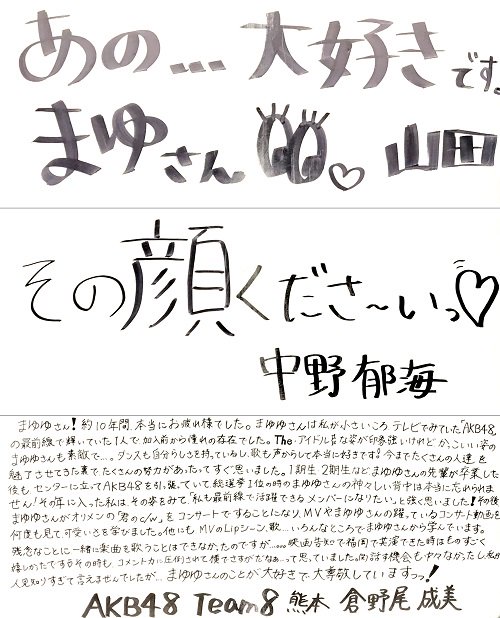 あの... 大好きです。
まゆさん♡ 山田
その顔くださ〜いっ♡
中野郁海
まゆゆさん!約10年間、本当にお疲れ様でした。まゆゆさんは私が小さいころ、テレビでみていたAKB48
の最前線で輝いていた1人で、加入前から憧れの存在でした。The・アイドルな姿が印象強いけれど、かっこいい姿の
まゆゆさんも素敵で...。ダンスも自分らしさを持っているし、歌も声からして本当に好きです!今までたくさんの人達を
魅了させてきた裏で、たくさんの努力があったってすごく思いました。1期生 2期生などまゆゆさんの先輩が卒業した
後も センターに立ってAKB48を引っ張っていて総選挙1位の時のまゆゆさんの神々しい背中は本当に忘れられま
せん!その年に入った私は、その姿をみて「私も最前線で活躍できるメンバーになりたい」と強く思いました!その後
まゆゆさんがオリメンの「君のc/w」をコンサートですることになり、MVやまゆゆさんの踊っているコンサート動画を
何度も見て可愛いさを学びました。他にも MVのLipシーン、歌...いろんなところでまゆゆさんから学んでいます。
残念なことに一緒に楽曲を歌うことはできなかったのですが、...映画告知で福岡で共演できた時はものすごく
嬉しかったですその時も、コメント力に圧倒されて横でさすがだなぁって思っていました。
人見知りすぎて言えませんでしたが...まゆゆさんのことが大好きで、大尊敬していますっっ!
AKB48 Team8 熊本 倉野尾 成美